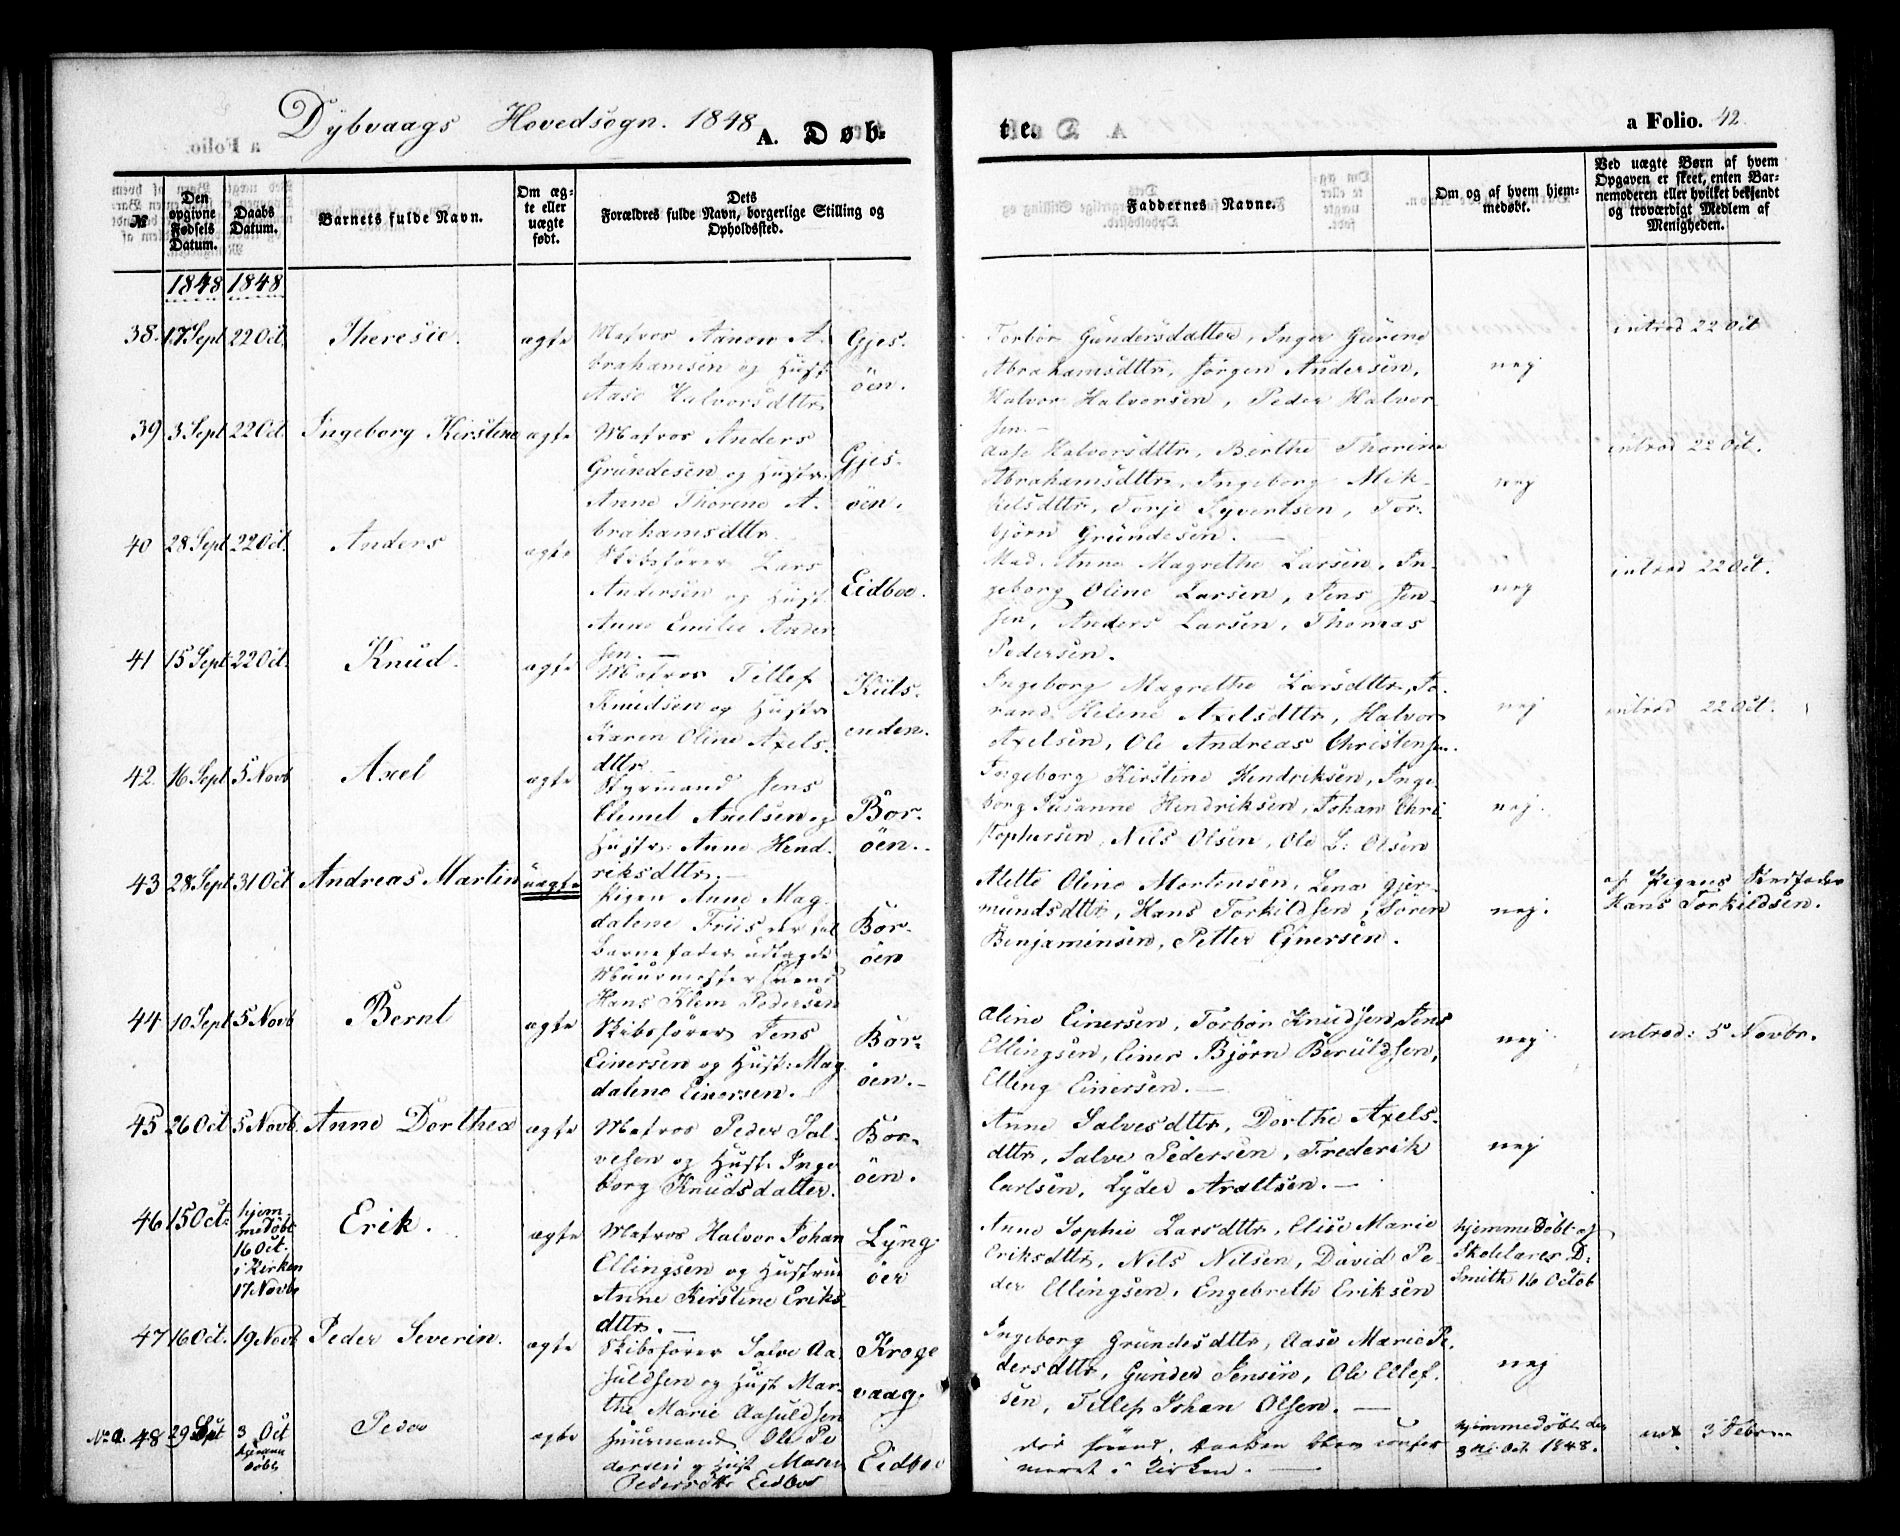 Dybvaags Hovedsogn. 1848
A. Døb-
te.
a Folio. 42
№
Den opgivne Fødsels Datum.
Daabs Datum.
Barnets fulde Navn.
Om ægte eller uægte født.
Dets
Forældres fulde Navn, borgerlige Stilling og Opholdssted.
Faddernes Navne.
Om og af hvem hjemmedøbt.
Ved uægte Børn af hvem Opgaven er skeet, enten Barnemoderen eller hvilket bekjendt og troværdigt Medlem af Menigheden.
1848 1848
38. 17 Sept 22 Oct. Theresie. ægte
Matros Aanon A-
brahamsen og Hust
Aase Halvorsdttr
Gjes-
öen.
Torbor Gundersdatter, Inger Gurine
Abrahamsdttr, Jörgen Andersen,
Halvor Halvorsen, Peder Halvor
sen.
nej
introd 22 Oct
39 3 Sept 22 Oct. Ingeborg Kirstine ægte
Matros Anders
Grundesen og Hustr
Anne Thorene A-
brahamsdttr
Gjes-
öen.
Aase Halvorsdttr, Berthe Thorine
Abrahamsdttr, Ingeborg Mik-
kelsdttr, Torje Syvertsen, Tor-
björn Grundesen.
nej
introd 22 Oct.
40 28 Sept 22 Oct. Anders ægte
Skibsförer Lars
Andersen og Hust
Anne Emilie Ander
sen.
Eidboe.
Mad. Anne Magrethe Larsen, In-
geborg Oline Larsen, Jens Jen-
sen, Anders Larsen, Thomas
Pedersen.
nej
introd 22 Oct.
41 15 Sept 22 Oct. Knud. ægte
Matros Tellef
Knudsen og Hustr
Karen Oline Axels-
dttr
Kuls-
enden.
Ingeborg Magrethe Larsdttr, To-
rand Helene Axelsdttr, Halvor
Axelsen, Ole Andreas Christensen.
nej
introd 22 Oct.
42. 16 Sept 5 Novb Axel ægte
Styrmand Jens
Clemet Axelsen og
Hustr. Anne Hend-
riksdttr.
Bor-
öen.
Ingeborg Kirstine Hendriksen, Inge-
borg Susanne Hendriksen, Johan Chri
stophersen, Nils Olsen, Ole L: Olsen
nej.
43 28 Sept 31 Oct Andreas Martin uægte
Pigen Anne Mag-
dalene Friis
Barnefader udlagde
Muurmester Svend
Hans Klem Pedersen
Bor-
öen
Mette Oline Mortensen, Lena Gjer-
mundsdttr, Hans Torkildsen, Soren
Benjaminsen, Petter Ejnersen.
nej.
af Pigens Stedfader
Hans Torkildsen.
44 10 Sept 5 Novb Bernt ægte
Skibsförer Jens
Einersen og Hust: Mag
dalene Einersen.
Bor-
öen.
Oline Einersen, Torbör Knudsen, Jens
Ellingsen, Einer Björn Beruldsen,
Elling Einersen.
nej
introd: 5 Novbr.
45 26 Oct 5 Novb. Anne Dorthea ægte
Matros Peder Sal-
vesen og Hust: Inge
borg Knudsdatter.
Bor-
öen.
Anne Salvesdttr, Dorthe Axels-
dttr, Salve Pedersen, Frederik
Carlsen, Lyder Araltsen.
nej
46 15 Oct.
hjem-
medöbt
16 Oct.
i Kirken
17 Novb
Erik. ægte
Matros Halvor Johan
Ellingsen og Hustrue
Anne Kirstine Eriks-
dttr.
Lyng-
öer
Anne Sophie Larsdttr, Elise Marie
Eriksdttr, Nils Nilsen, David Pe-
der Ellingsen, Engebreth Eriksen
hjemmedöbt af
Skolelærer D.
Smith 16 Octob
47 16 Oct. 19 Novb Peder Severin. ægte
Skibsförer Salve Aa-
suldsen og Hust Mar-
the Marie Aasuldsen
Kroge
vaag.
Ingeborg Grundesdttr, Aase Marie Pe-
dersdttr, Gunder Jensen, Ole Ellef-
sen, Tellef Johan Olsen.
nej
48 29 Sept 3 Oct
hjemme
döbt
Peder ægte
Huusmand Ole Pe
dersen og Hust Maren
Pedersdttr Eidboe
Eidboe
döe forend Daaben blev confir
meret i Kirken.
hjemmedöbt den
3die Oct 1848.
3 Febr